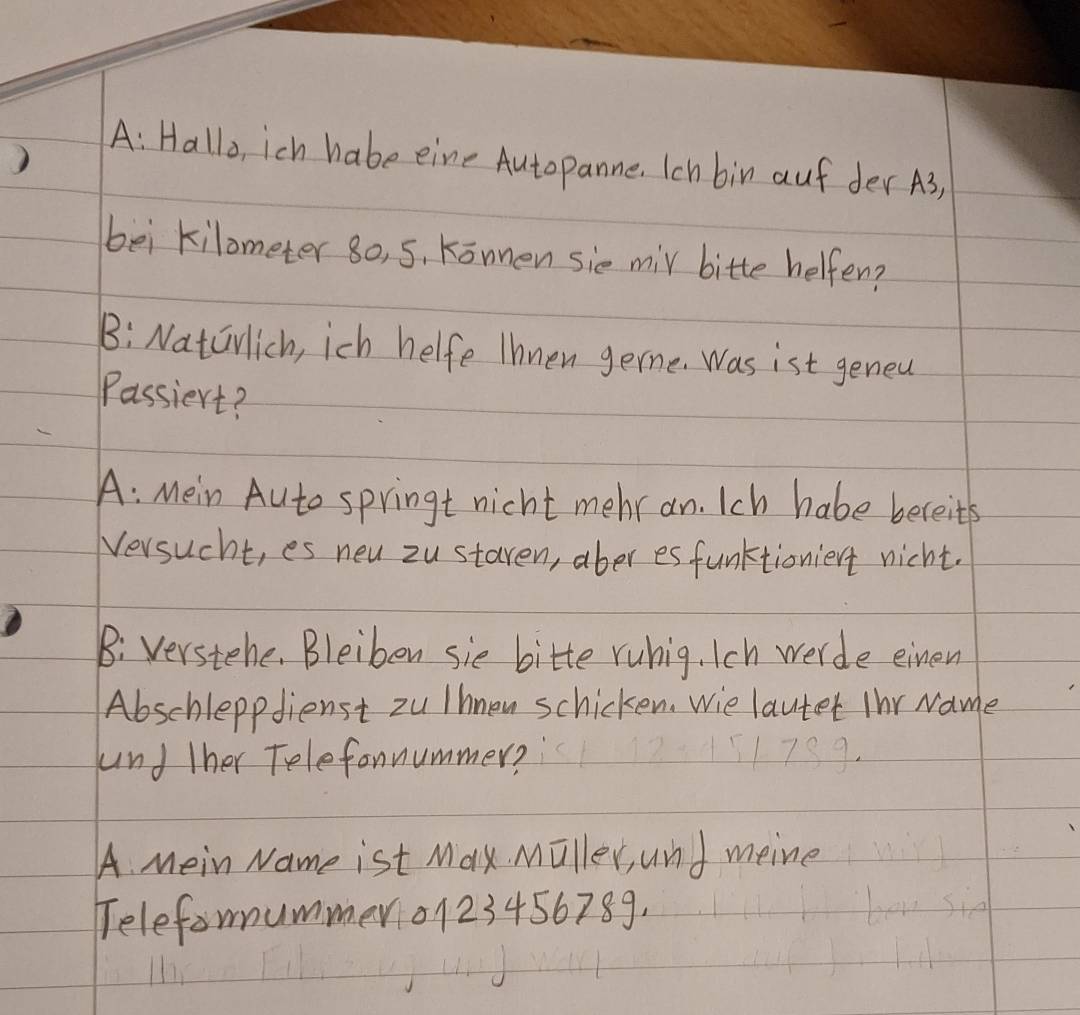 A: Hallo, ich habe eine Autopanne. Ich bin auf der A3,
bei Kilometer 80,5. Können sie mir bitte helfen?
B: Natürlich, ich helfe Ihnen gerne. Was ist geneu
Passiert?
A: Mein Auto springt nicht mehr an. Ich habe bereits
Versucht, es neu zu staren, aber es funktioniert nicht.
B: Verstehe. Bleiben sie bitte ruhig. Ich werde einen
Abschleppdienst zu Ihnen schicken. Wie lautet Ihr Name
und Iher Telefonnummer?
A. Mein Name ist Max Müller, und meine
Telefonnummer 0123456789.